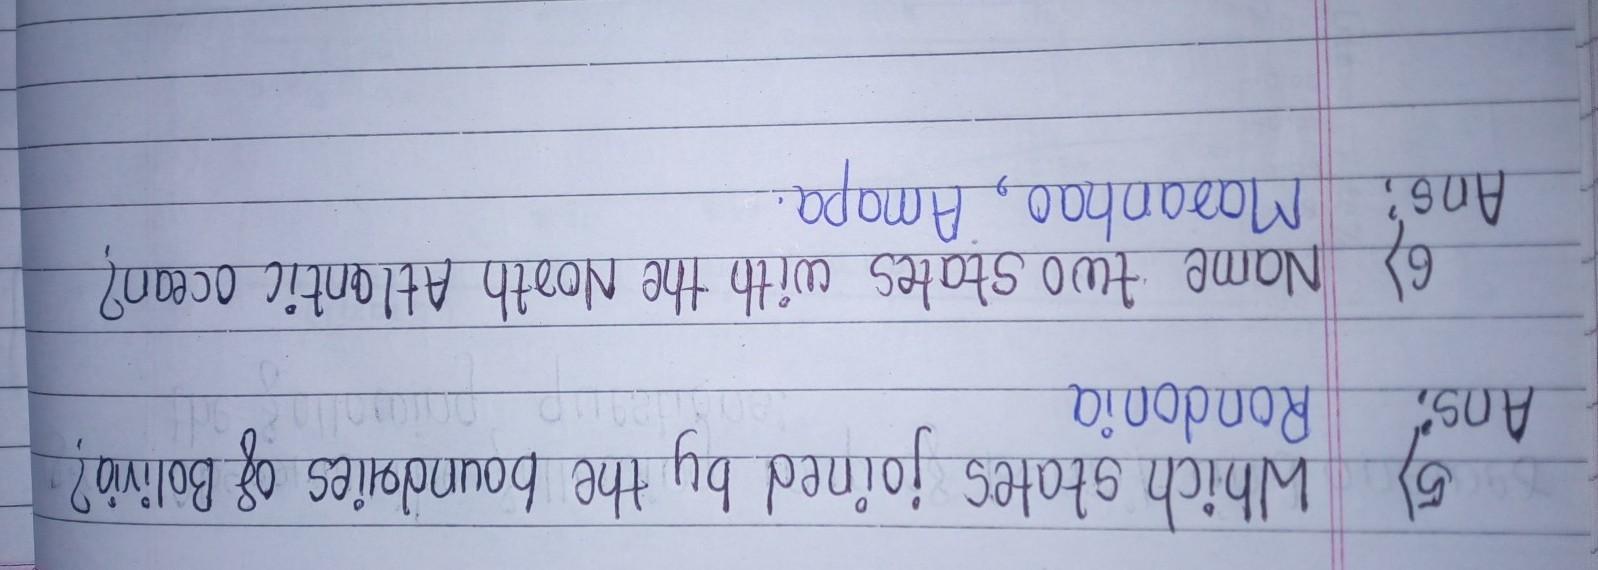 5) Which states joined by the boundries of Bolivia?
Ans: Rondonia
6) Name two states with the North Atlantic ocean?
Ans: Maranhao, Amapa.